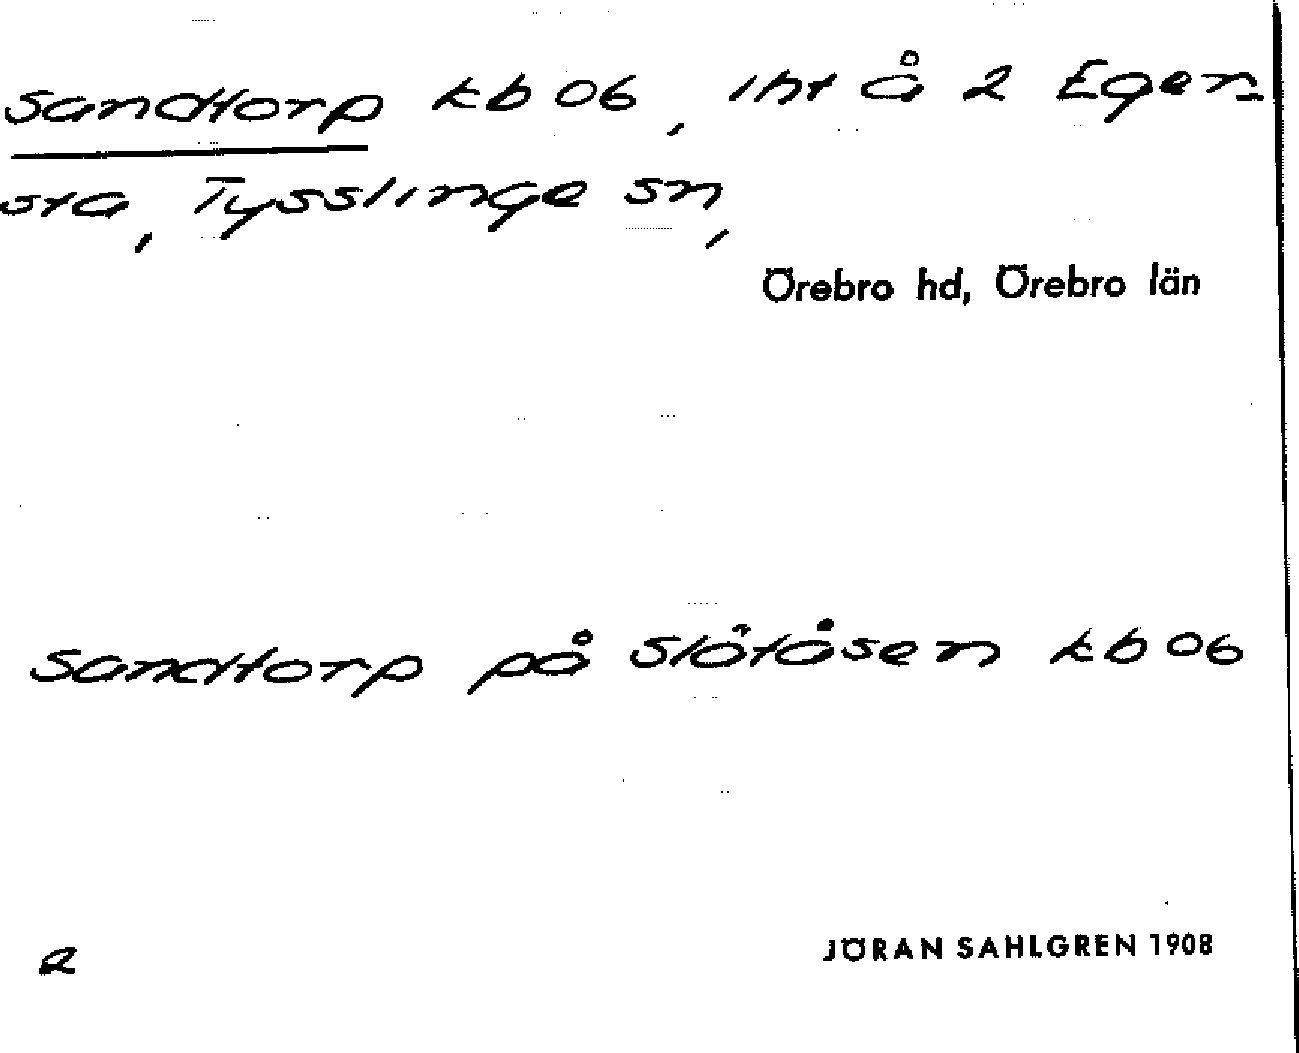 Sandtorp kb 06, iht å 2 Eger-
sta, Tysslinge sn,
Örebro hd, Örebro län
Sandtorp på Slötåsen kb 06
2 JÖRAN SAHLGREN 1908